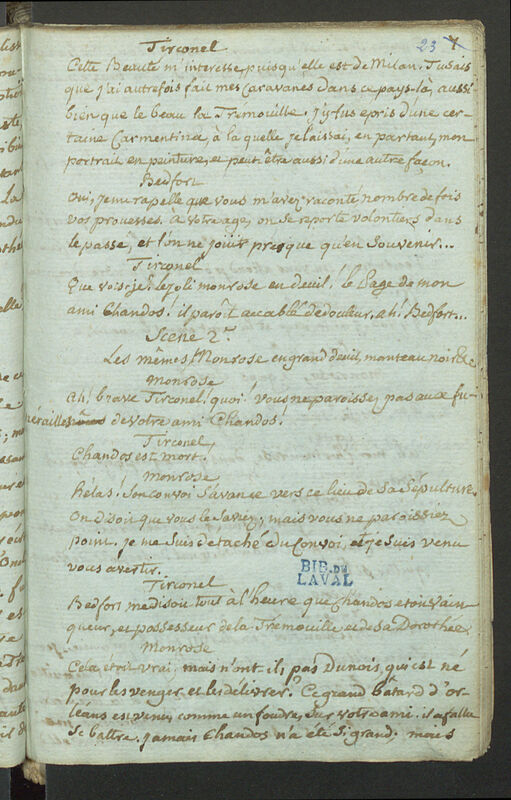 23 7
Tirconel
Cette Beauté m'interesse, puisqu'elle est de Milan. Tu sais
que j'ai autrefois fait mes Caravanes dans ce pays-là, aussi
bien que le beau la Tremouille. j'y fus epris d'une cer-
taine Carmentina, à la quelle je laissai, en partant, mon
portrait en peinture, et peut être aussi d'une autre façon.
Bedfort
Oui, je me rapelle que vous m'avez raconté nombre de fois
vos prouesses. à votre age, on se reporte volontiers dans
le passé, et l'on ne jouit presque qu'en souvenir...
Tirconel
Que vois-je! le joli monrose en deuil! le Page de mon
ami Chandos! il paroît accablé de douleur. ah! Bedfort...
Scene 2.e
Les mêmes, Monrose en grand deuil, manteau noir &c
monrose
Ah! brave Tirconel! quoi! vous ne paroissez pas aux fu-
nerailles de votre ami Chandos!
Tirconel
Chandos est mort.
Monrose
hélas! son convoi s'avance vers ce lieu de sa sépulture.
On disoit que vous le saviez; mais vous ne paroissiez
point. je me suis detaché du Convoi, et je suis venu
vous avertir.
BIB. DE
LAVAL
Tirconel
Bedfort me disoit tout à l'heure que Chandos etoit vain
queur, et possesseur de la Tremouille et de sa Dorothée.
Monrose
Cela etoit vrai, mais n'ont-ils pas Dunois, qui est né
pour les venger et les délivrer? Ce grand bâtard d'or-
léans est venu, comme un foudre, sur votre ami. il a fallu
se battre. jamais Chandos n'a eté si grand; mais